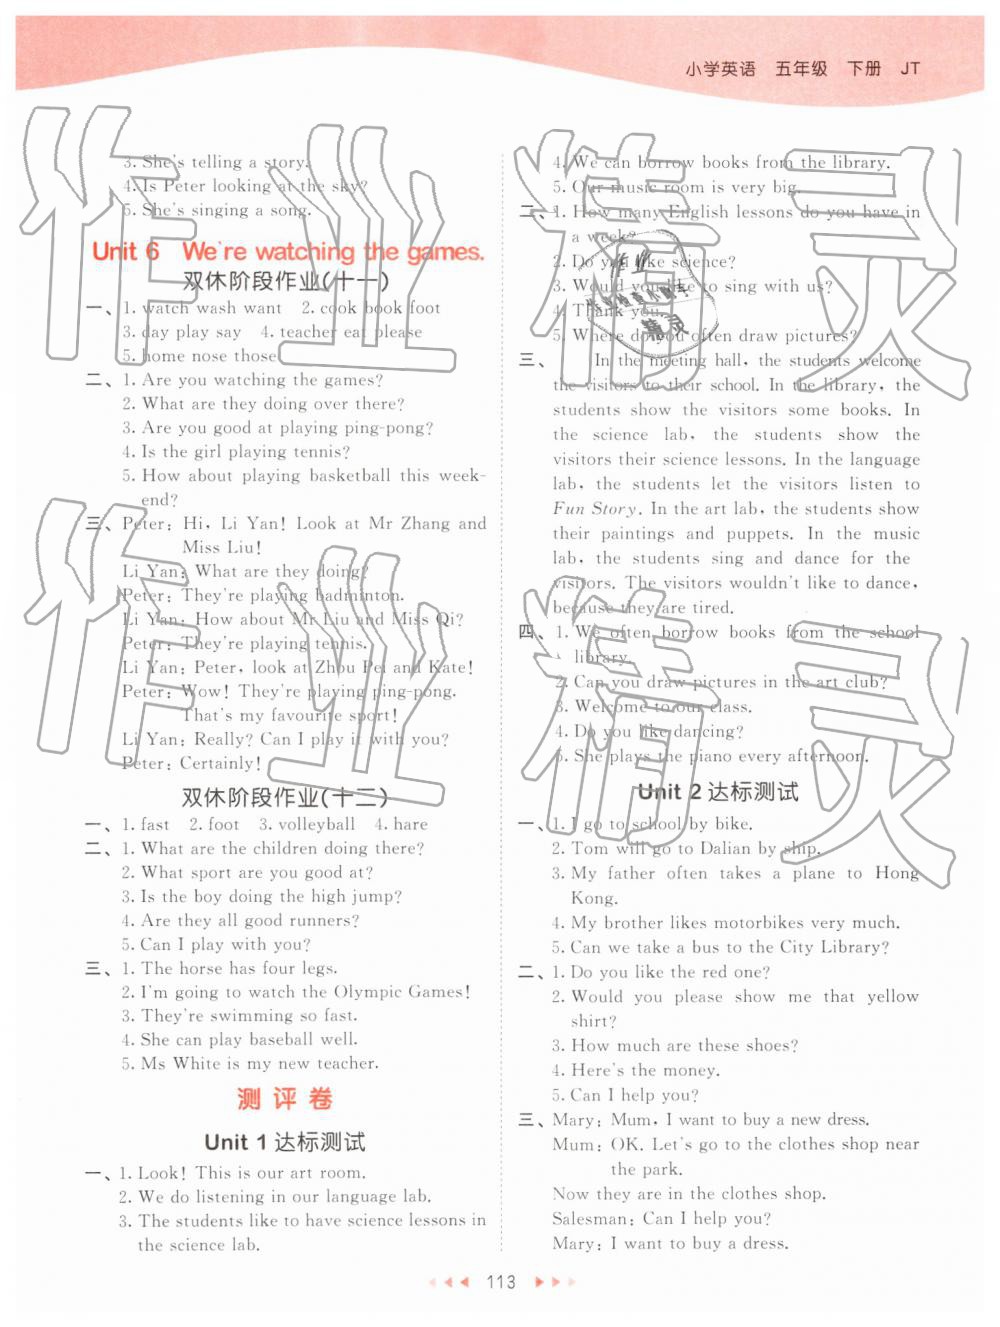 小学英语 五年级 下册 JT
3. She's telling a story.
4. Is Peter looking at the sky?
5. She's singing a song.
Unit 6 We're watching the games.
双休阶段作业(十一)
一、1. watch wash want 2. cook book foot
3. day play say 4. teacher eat please
5. home nose those
二、1. Are you watching the games?
2. What are they doing over there?
3. Are you good at playing ping-pong?
4. Is the girl playing tennis?
5. How about playing basketball this week-
end?
三、Peter: Hi, Li Yan! Look at Mr Zhang and
Miss Liu!
Li Yan: What are they doing?
Peter: They're playing badminton.
Li Yan: How about Mr Liu and Miss Qi?
Peter: They're playing tennis.
Li Yan: Peter, look at Zhou Pei and Kate!
Peter: Wow! They're playing ping-pong.
That's my favourite sport!
Li Yan: Really? Can I play it with you?
Peter: Certainly!
双休阶段作业(十二)
一、1. fast 2. foot 3. volleyball 4. hare
二、1. What are the children doing there?
2. What sport are you good at?
3. Is the boy doing the high jump?
4. Are they all good runners?
5. Can I play with you?
三、1. The horse has four legs.
2. I'm going to watch the Olympic Games!
3. They're swimming so fast.
4. She can play baseball well.
5. Ms White is my new teacher.
测评卷
Unit 1 达标测试
一、1. Look! This is our art room.
2. We do listening in our language lab.
3. The students like to have science lessons in
the science lab.
4. We can borrow books from the library.
5. Our music room is very big.
二、1. How many English lessons do you have in
a week?
2. Do you like science?
3. Would you like to sing with us?
4. Thank you.
5. Where do you often draw pictures?
三、In the meeting hall, the students welcome
the visitors to their school. In the library, the
students show the visitors some books. In
the science lab, the students show the
visitors their science lessons. In the language
lab, the students let the visitors listen to
Fun Story. In the art lab, the students show
their paintings and puppets. In the music
lab, the students sing and dance for the
visitors. The visitors wouldn't like to dance,
because they are tired.
四、1. We often borrow books from the school
library.
2. Can you draw pictures in the art club?
3. Welcome to our class.
4. Do you like dancing?
5. She plays the piano every afternoon.
Unit 2 达标测试
一、1. I go to school by bike.
2. Tom will go to Dalian by ship.
3. My father often takes a plane to Hong
Kong.
4. My brother likes motorbikes very much.
5. Can we take a bus to the City Library?
二、1. Do you like the red one?
2. Would you please show me that yellow
shirt?
3. How much are these shoes?
4. Here's the money.
5. Can I help you?
三、Mary: Mum, I want to buy a new dress.
Mum: OK. Let's go to the clothes shop near
the park.
Now they are in the clothes shop.
Salesman: Can I help you?
Mary: I want to buy a dress.
113
作业精灵
作业精灵
作业
精灵